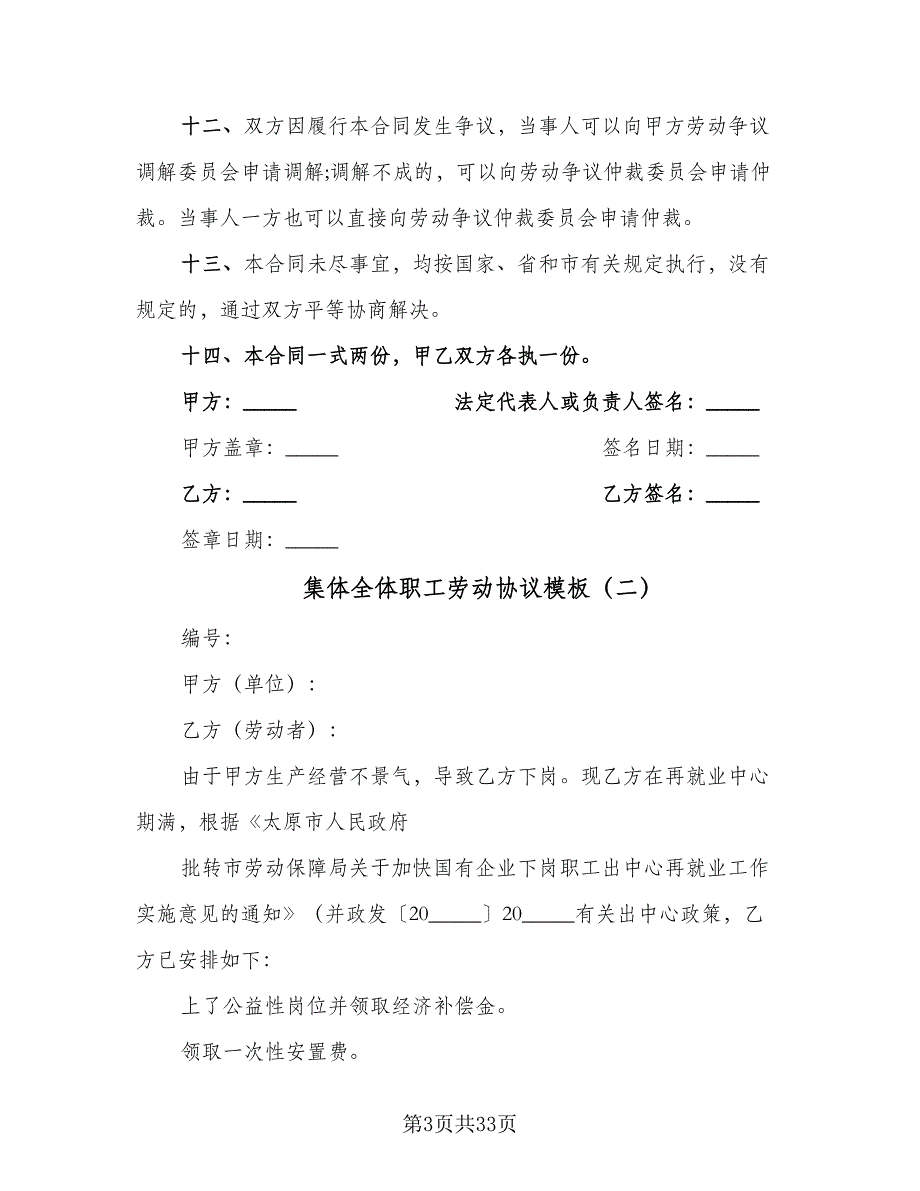 十二、双方因履行本合同发生争议，当事人可以向甲方劳动争议
调解委员会申请调解;调解不成的，可以向劳动争议仲裁委员会申请仲
裁。当事人一方也可以直接向劳动争议仲裁委员会申请仲裁。
十三、本合同未尽事宜，均按国家、省和市有关规定执行，没有
规定的，通过双方平等协商解决。
十四、本合同一式两份，甲乙双方各执一份。
甲方：_____ 法定代表人或负责人签名：_____
甲方盖章：_____ 签名日期：_____
乙方：_____ 乙方签名：_____
签章日期：_____
集体全体职工劳动协议模板（二）
编号：
甲方（单位）：
乙方（劳动者）：
由于甲方生产经营不景气，导致乙方下岗。现乙方在再就业中心
期满，根据《太原市人民政府
批转市劳动保障局关于加快国有企业下岗职工出中心再就业工作
实施意见的通知》（并政发〔20_____〕20_____有关出中心政策，乙
方已安排如下：
上了公益性岗位并领取经济补偿金。
领取一次性安置费。
第3页共33页